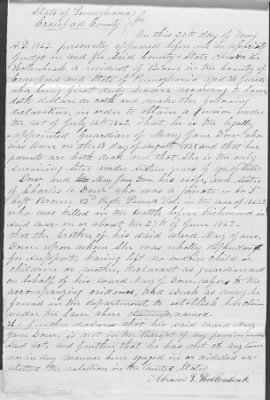 State of Pennsylvania
Crawford County } ss
On this 20th day of May
A.D. 1863 personally appeared before me an associate
Judge in and for said County & State Abram L.
Hollenback a resident of Athens in the County of
Crawford and State of Pennsylvania aged 34 years
who being first duly sworn according to law
doth declare on oath and make the following
declaration, in order to obtain a pension under
the act of July 14th 1862. That he is the legally
appointed guardian of Mary Jane Dow who
was born on the 13 day of August 1855 and that her
parents are both dead and that She is the only
surviving sister under sixteen years of age
Dow and
of Charles A. Dow who was a private in Co
Regt Penna Vols in the war of 1861 &
who was killed in the Battle before Richmond in
said war on or about the 27th of June 1862.
that the brother of his said ward Mary Jane
Dow upon whom she was wholly dependent
for support; having left no widow child or
children or mother, declarant as guardian and
on behalf of his ward Mary J. Dow refers to the
accompanying evidence, and such as may be
found in the department, to establish her claim
under the law above named.
He further declares that his said ward Mary
Jane Dow is not in the receipt of any pension
said act, and further that he has not at any time
nor in any manner been engaged in or aided or
abetted the rebellion in the United States
Abram L. Hollenback